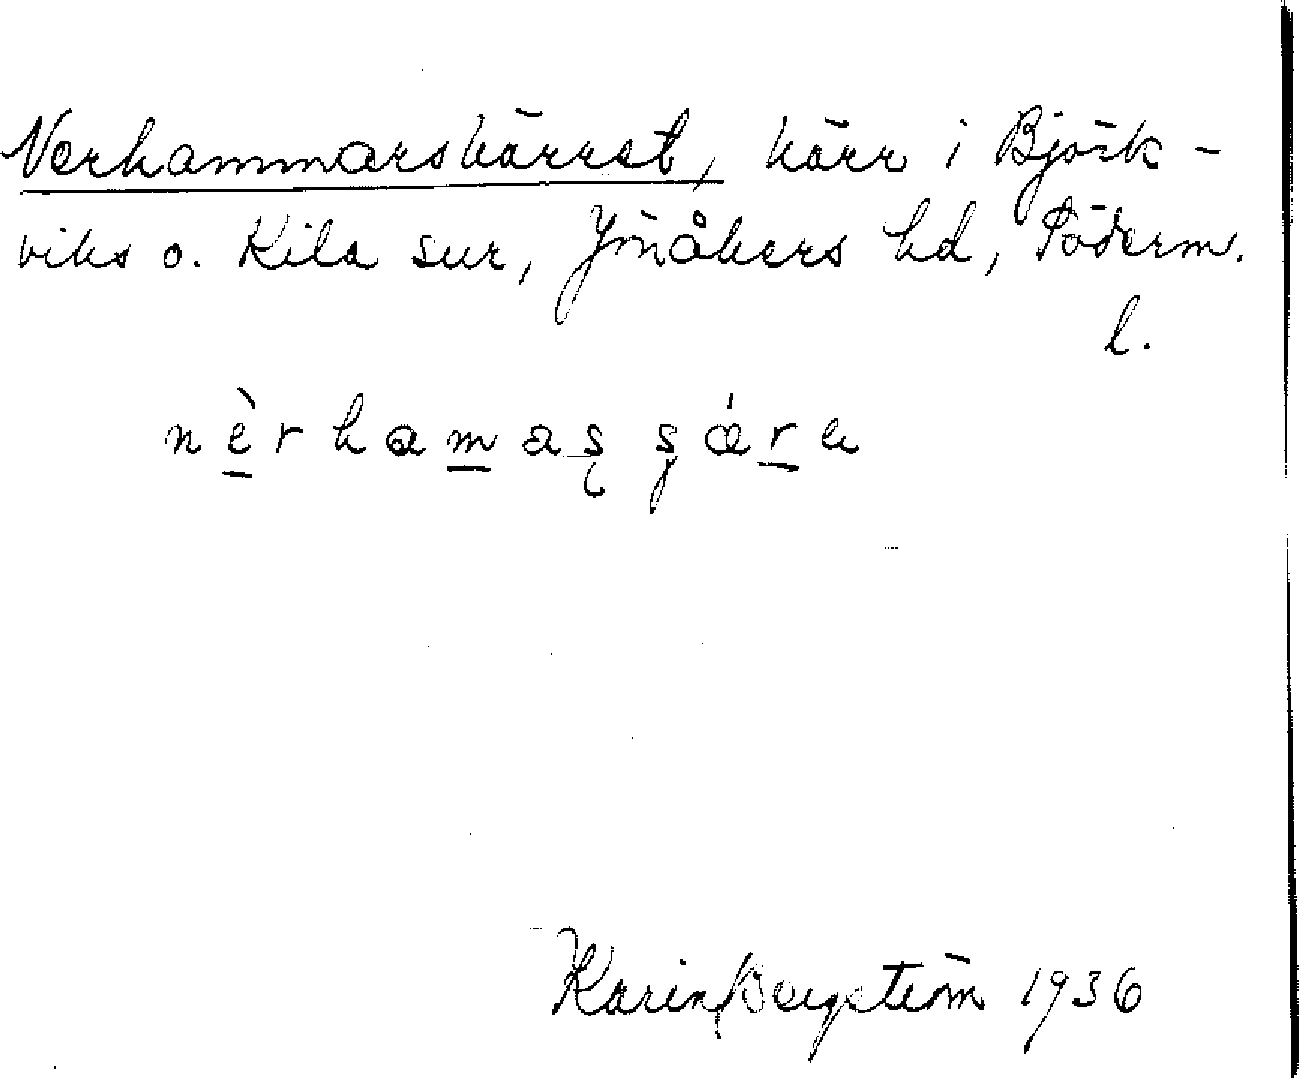 Nerhammarskärret, kärr i Björk-
viks o. Kila snr, Jönåkers hd, Söderm.
l.
nèrhamaʂ ʂǽrɐ
Karin Bergström 1936